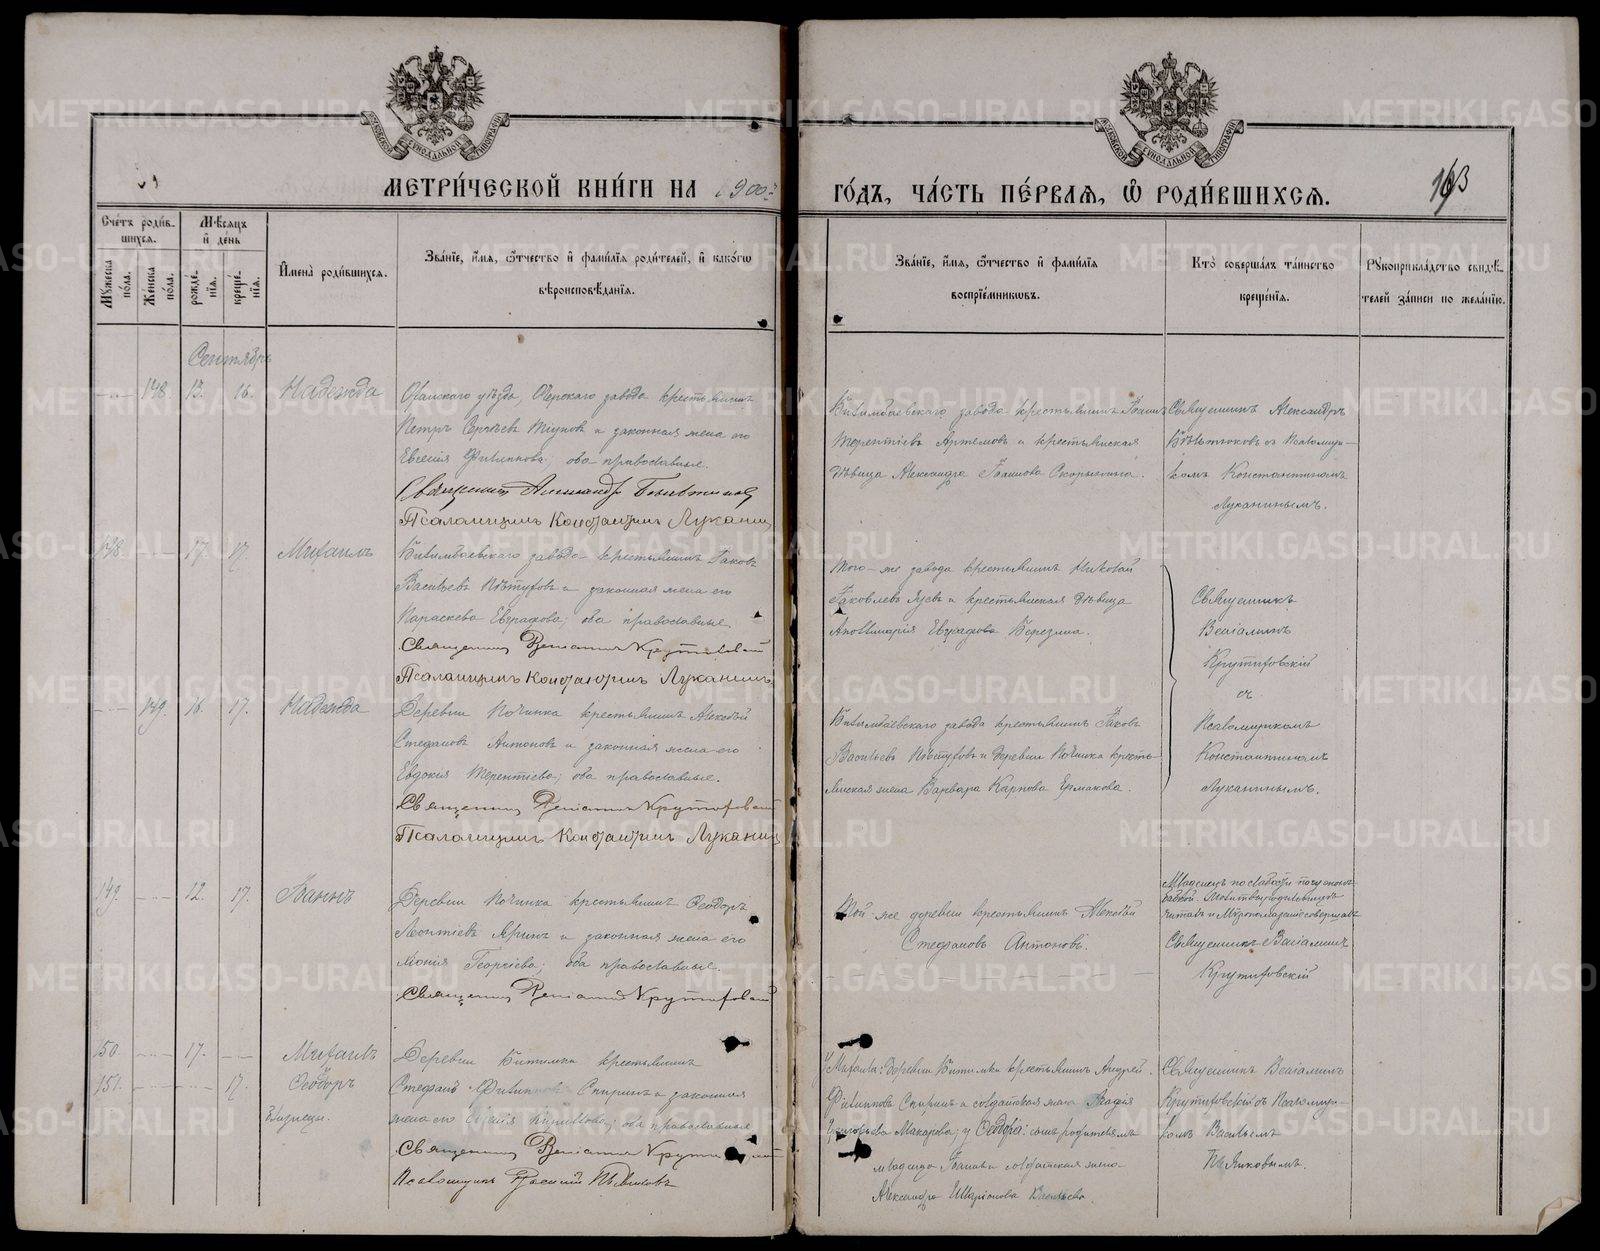 МЕТРИ́ЧЕСКОЙ КНИ́ГИ НА 1900й
ГО́ДЪ, ЧА́СТЬ ПЕ́РВАЯ, Ѡ РОДИ́ВШИХСЯ.
163
Сче́тъ роди́вшихся.
Му́жеска по́ла.
Же́нска по́ла.
Мѣ́сяцъ и де́нь
рожде́нїя.
креще́нїя.
И҆мена̀ роди́вшихся.
Зва́нїе, и҆́мя, ѻ҆́тчество и҆ фами́лїя роди́телей, и҆ како́гѡ
вѣроисповѣ́данїя.
Зва́нїе, и҆́мя, ѻ҆́тчество и҆ фами́лїя
воспрїе́мникѡвъ.
Кто̀ соверша́лъ та́инство
креще́нїя.
Рꙋкоприкла́дство свидѣ́-
телей за́писи по жела́нїю.
Сентябрь
148. 13. 16. Надежда
Оханскаго уѣзда, Очерскаго завода крестьянинъ
Петръ Сергѣевъ Тіуновъ и законная жена его
Евгенія Филиппова; оба православные.
Священникъ Александръ
Псаломщикъ Константинъ Луканинъ
Билимбаевскаго завода крестьянинъ Іоаннъ
Терентіевъ Артемовъ и крестьянская
дѣвица Александра Іоаннова Скорынина.
Священникъ Александръ
съ Псаломщи-
комъ Константиномъ
Луканинымъ.
148. 17. 17. Михаилъ
Билимбаевскаго завода крестьянинъ Іаковъ
Васильевъ Пѣтуховъ и законная жена его
Параскева Евграфова; оба православные.
Священникъ Веніаминъ Крутиховскій
Псаломщикъ Константинъ Луканинъ
Того-же завода крестьянинъ Николай
Іаковлевъ и крестьянская дѣвица
Аполлинарія Евграфова Березина.
Священникъ
Веніаминъ
Крутиховскій
съ
Псаломщикомъ
Константиномъ
Луканинымъ.
149. 16. 17. Надежда
Деревни Починка крестьянинъ Алексѣй
Стефановъ Антоновъ и законная жена его
Евдокія Терентіева; оба православные.
Священникъ Веніаминъ Крутиховскій
Псаломщикъ Константинъ Луканинъ
Билимбаевскаго завода крестьянинъ Іаковъ
Васильевъ Пѣтуховъ и деревни Починка кресть-
янская жена Варвара Карпова Ермакова.
149. 12. 17. Іоаннъ
Деревни Починка крестьянинъ Ѳеодоръ
Леонтіевъ и законная жена его
Георгіева; оба православные.
Священникъ Веніаминъ Крутиховскій
Той-же деревни крестьянинъ Алексѣй
Стефановъ Антоновъ.
Младенецъ по слабости погружонъ
бабкой. Молитвы родильницѣ
читалъ и Мѵропомазаніе совершалъ
Священникъ Веніаминъ
Крутиховскій
150. 17. Михаилъ
151. 17. Ѳеодоръ
близнецы.
Деревни Битимка крестьянинъ
Стефанъ Филипповъ Спиринъ и законная
жена его Кириллова; оба православные
Священникъ Веніаминъ Крутиховскій
Псаломщикъ Василій Пьянковъ
У Михаила: деревни Битимки крестьянинъ Андрей
Филипповъ Спиринъ и солдатская жена
Григорьева Макарова; у Ѳеодора: сынъ родителямъ
младенца Іоаннъ и солдатская жена
Александра Васильева.
Священникъ Веніаминъ
Крутиховскій съ Псаломщи-
комъ Васильемъ
Пьянковымъ.
METRIKI.GASO-URAL.RU